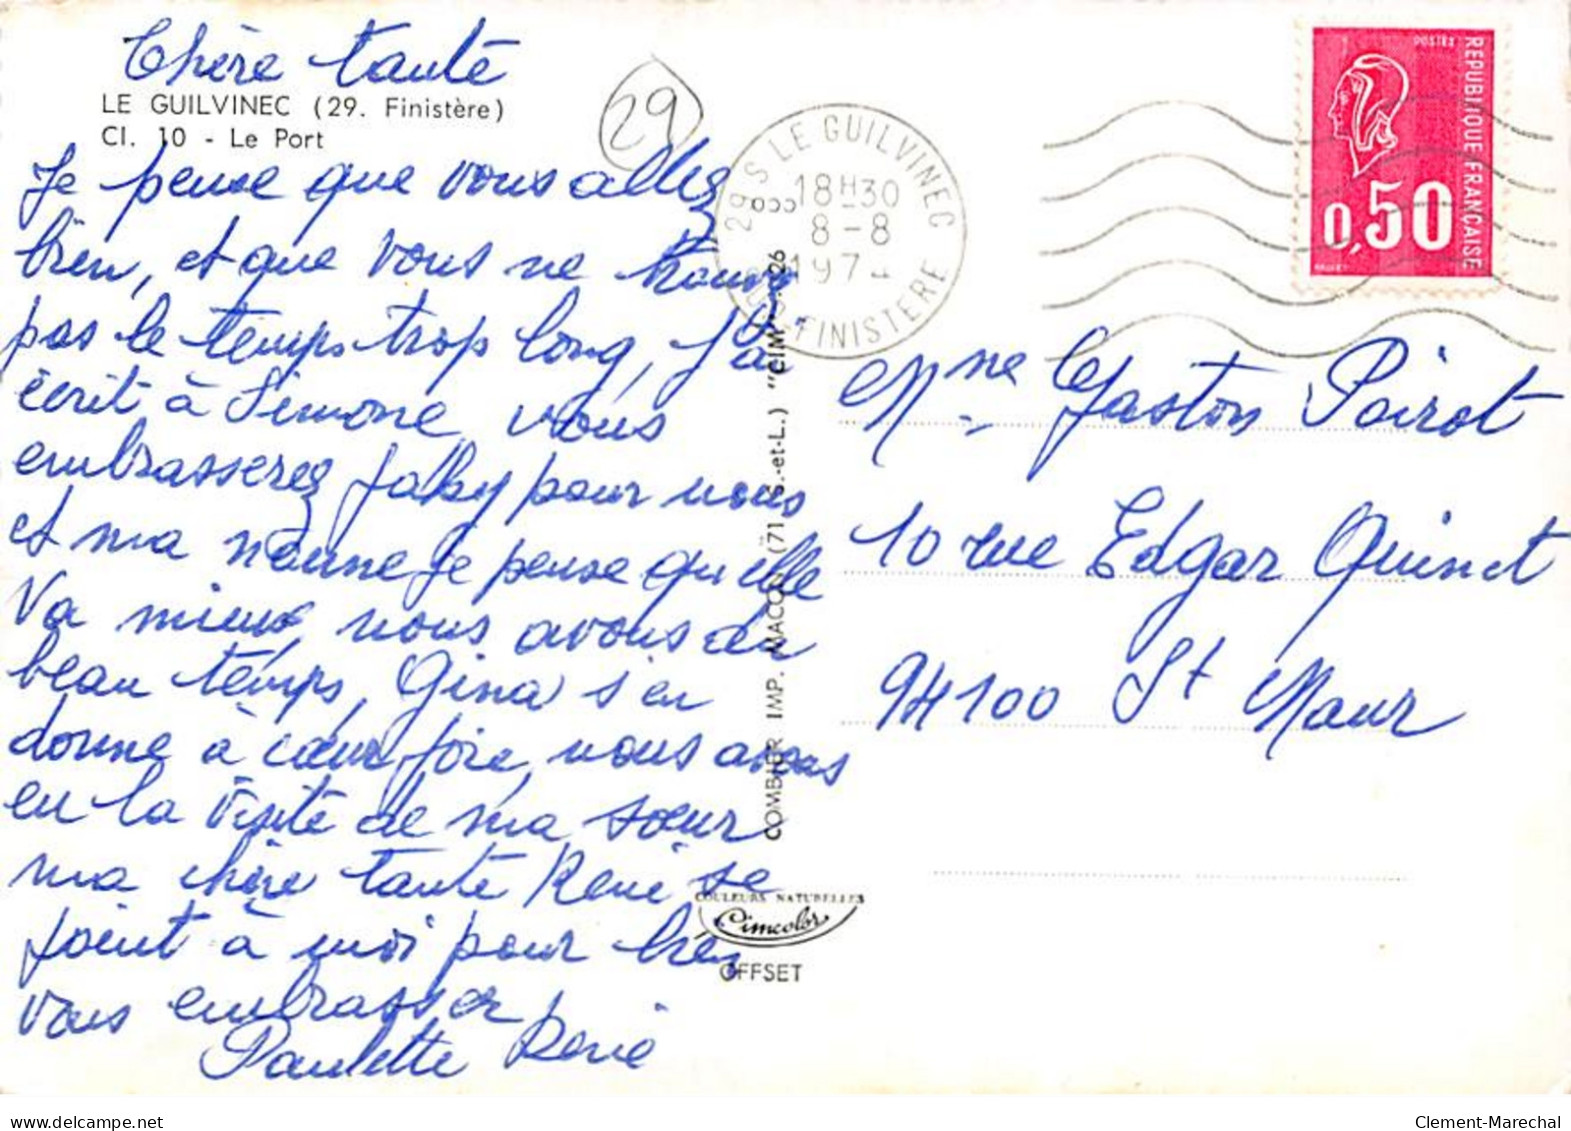 Chère tante
LE GUILVINEC (29. Finistère)
Cl. 10 - Le Port
Je pense que vous allez
bien, et que vous ne trouvez
pas le temps trop long, J'ai
écrit à Simone, vous
embrasserez Jaky pour nous
et ma nounne je pense qu'elle
va mieux, nous avons du
beau temps, Gina s'en
donne à cœur joie, nous avons
eu la visite de ma sœur
ma chère tante René se
joint à moi pour bien
vous embrasser
Paulette René
29
29 S LE GUILVINEC
18H30
8-8
1974
FINISTERE
POSTES
REPUBLIQUE FRANÇAISE
0,50
COMBIER IMP. MACON (71 S.-et-L.) "CIM"
COULEURS NATURELLES
Cimcolor
OFFSET
Mme Gaston Poirot
10 rue Edgar Quinet
94100 St Maur
delcampe.net
Clement-Marechal